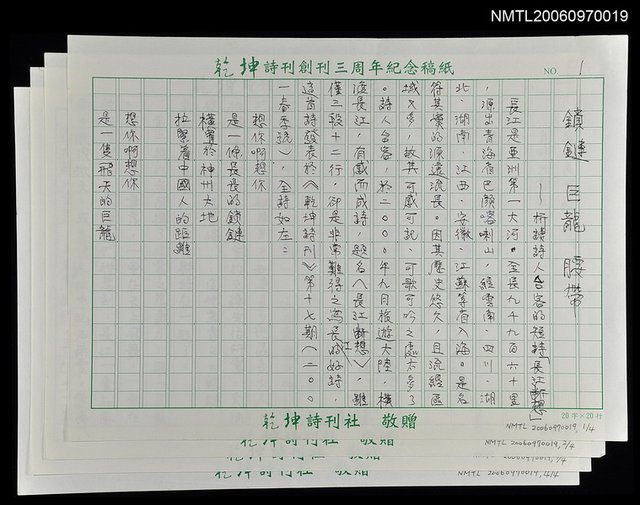 NMTL20060970019
乾坤詩刊創刊三周年紀念稿紙
NO. 1
鎖鏈 巨龍 腰帶
——析讀詩人台客的短詩〈長江斷想〉
長江是亞洲第一大河。全長九千九百六十里
，源出青海省巴顏喀喇山，經雲南、四川、湖
北、湖南、江西、安徽、江蘇等省入海。是名
符其實的源遠流長。因其歷史悠久，且流經區
域又多，故其可感可記、可歌可吟之處太多了
。詩人台客，於二〇〇〇年九月旅遊大陸，橫
渡長江，有感而成詩，題名〈長江斷想〉，雖
僅三段十二行，卻是非常難得之寫長江的好詩，
這首詩發表於《乾坤詩刊》第十七期（二〇〇
一春季號），全詩如左：
想你啊想你
是一條長長的鎖鏈
橫亙於神州大地
拉緊着中國人的距離
想你啊想你
是一隻飛天的巨龍
20字×20行
乾坤詩刊社 敬贈
NMTL 20060970019, 1/4
乾坤詩刊社 敬贈
NMTL 20060970019, 2/4
乾坤詩刊社 敬贈
乾坤詩刊社 敬贈
NMTL 20060970019, 4/4